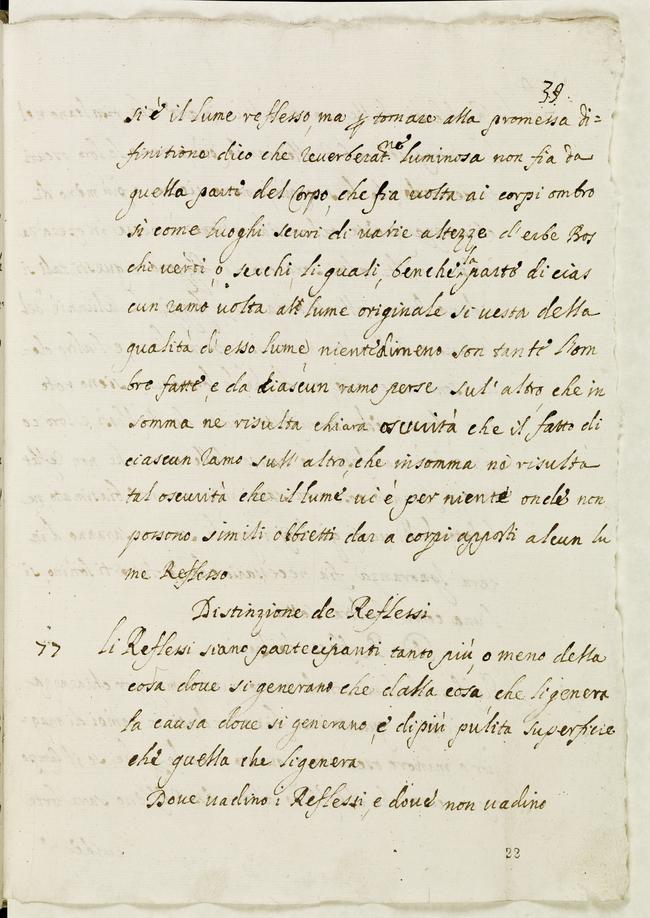 39.
si é il lume reflesso, ma p tornare alla promessa di=
finitione dico che reverberat.ne luminosa non fia da
quella parti del Corpo, che fia uolta ai corpi ombro
si come luoghi scuri di uarie altezze d'erbe Bos
chi uerdi, o secchi, li quali, benche la parte di cias
cun ramo uolta all lume originale si uesta della
qualità d'esso lume nientedimeno son tante l'om
bre fatte, e da ciascun ramo perse sul' altro, che in
somma ne risulta chiara oscurità che il fatto di
ciascun ramo sull' altro, che insomma né risulta
tal oscurità che il lume ui é per niente onde non
possono simili obbietti dar a corpi apposti alcun lu
me Reflesso
Distinzione de Reflessi
77 li Reflessi siano partecipanti tanto più, o meno della
cosa doue si generano che dalla cosa che ligenera
la causa doue si generano, é dipiú pulita superficie
ché quella che ligenera
Doue uadino i Reflessi, e doué non uadino
22